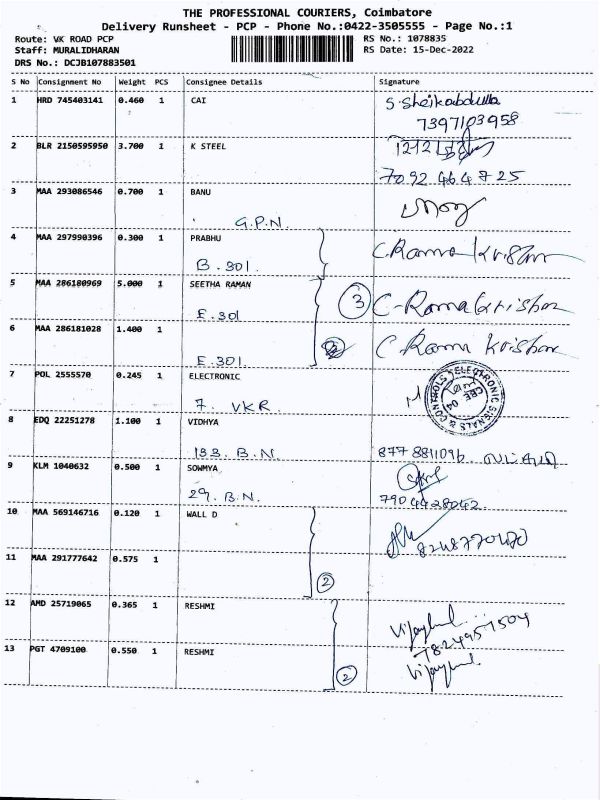 THE PROFESSIONAL COURIERS, Coimbatore
Delivery Runsheet - PCP - Phone No.:0422-3505555 - Page No.:1
Route: VK ROAD PCP
RS No.: 1078835
Staff: MURALIDHARAN
RS Date: 15-Dec-2022
DRS No.: DCJB107883501
S No Consignment No Weight PCS Consignee Details Signature
1 HRD 745403141 0.460 1 CAI S. Sheikabdulla
7397103958
2 BLR 2150595950 3.700 1 K STEEL
7092 464725
3 MAA 293086546 0.700 1 BANU
G.P.N.
4 MAA 297990396 0.300 1 PRABHU C. Rama Krishnan
B. 301.
5 MAA 286180969 5.000 1 SEETHA RAMAN
E. 301 3 C. Rama Krishnan
6 MAA 286181028 1.400 1 C. Rama Krishnan
E. 301
7 POL 2555570 0.245 1 ELECTRONIC
7. VKR. ELECTRONIC SIGNALS & CONTROLS CBE 04
8 EDQ 22251278 1.100 1 VIDHYA
133. B.N.
9 KLM 1040632 0.500 1 SOWMYA
29. B.N. 7904428042
10 MAA 569146716 0.120 1 WALL D
11 MAA 291777642 0.575 1
2
12 AMD 25719065 0.365 1 RESHMI
7824957504
13 PGT 4709100 0.550 1 RESHMI
2